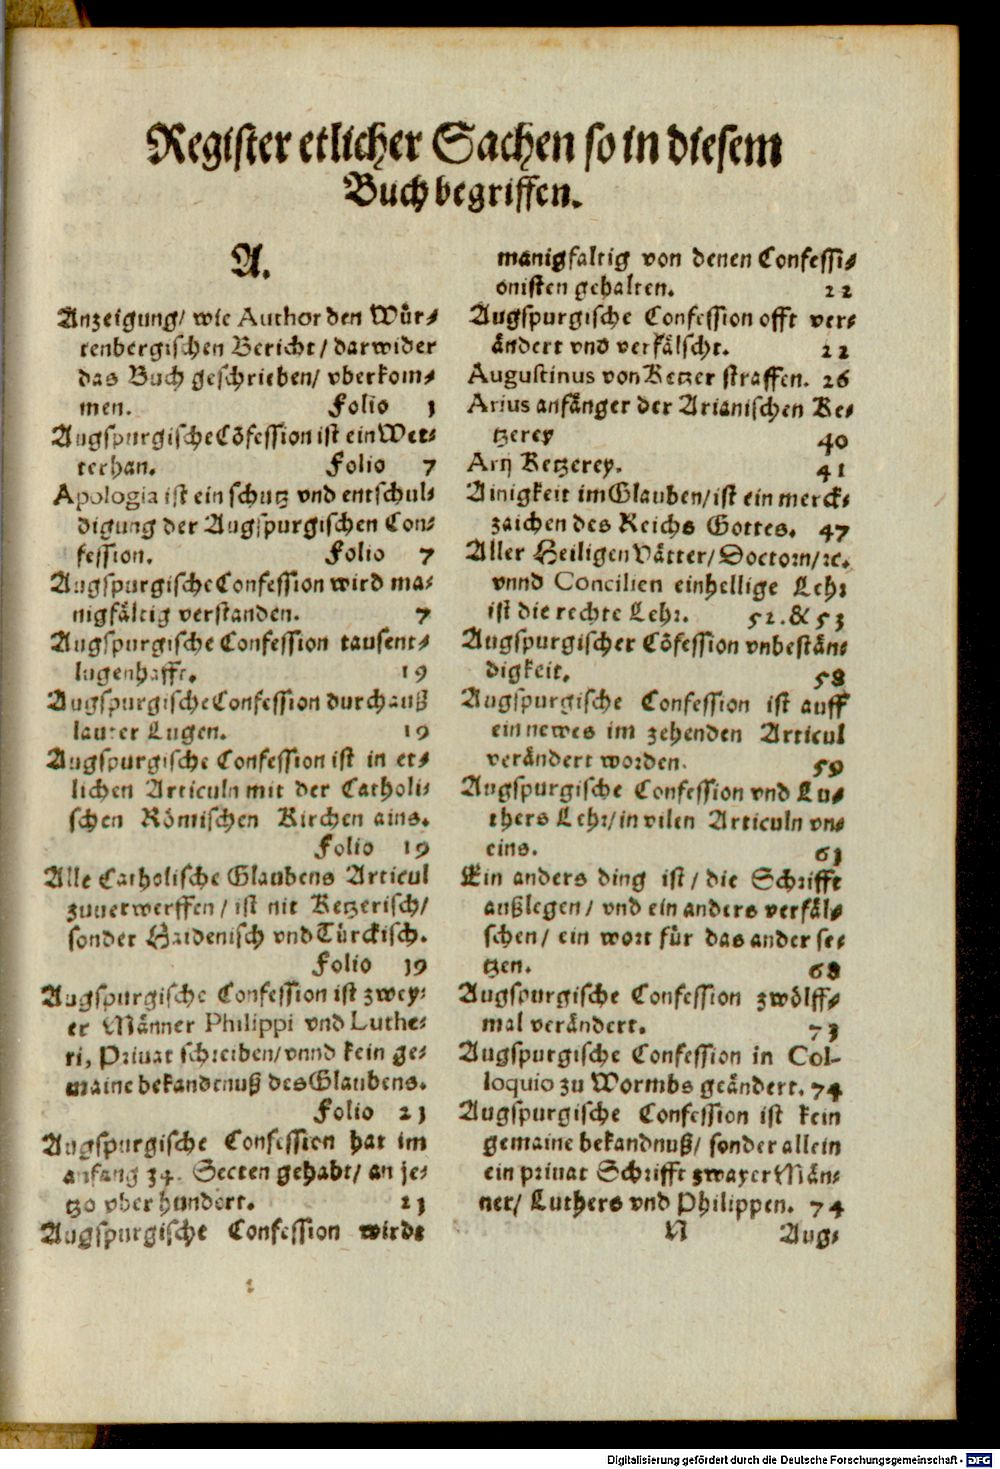 Register etlicher Sachen so in diesem
Buch begriffen.
A.
Anzeigung/ wie Author den Würs
tenbergischen Bericht/ darwider
das Buch geschrieben/ vberkom⸗
men. Folio 1
Augspurgische Cõfession ist ein Wet⸗
terhan. Folio 7
Apologia ist ein schutz vnd entschul⸗
digung der Augspurgischen Con⸗
fession. Folio 7
Augspurgische Confession wird ma⸗
nigfältig verstanden. 7
Augspurgische Confession tausent⸗
lugenhafft. 19
Augspurgische Confession durchauß
lauter Lugen. 19
Augspurgische Confession ist in et⸗
lichen Articuln mit der Catholi⸗
schen Römischen Kirchen ains.
Folio 19
Alle Catholische Glaubens Articul
zuuerwerffen/ ist nit Ketzerisch/
sonder Haidenisch vnd Türckisch.
Folio 19
Augspurgische Confession ist zwey⸗
er Männer Philippi vnd Luthe⸗
ri, Priuat schreiben/ vnnd kein ge⸗
maine bekandtnuß des Glaubens.
Folio 21
Augspurgische Confession hat im
anfang 34. Secten gehabt/ an je⸗
tzo vber hundert. 21
Augspurgische Confession wirdt
manigfaltig von denen Confessi⸗
onisten gehalten. 22
Augspurgische Confession offt ver⸗
ändert vnd verfälscht. 22
Augustinus von Ketzer straffen. 26
Arius anfänger der Arianischen Ke⸗
tzerey 40
Arij Ketzerey. 41
Ainigkeit im Glauben/ ist ein merck⸗
zaichen des Reichs Gottes. 47
Aller Heiligen Vätter/ Doctorn/ ꝛc.
vnnd Concilien einhellige Lehr
ist die rechte Lehr. 52. & 53
Augspurgischer Cõfession vnbestän⸗
digkeit. 58
Augspurgische Confession ist auff
ein newes im zehenden Articul
verändert worden. 59
Augspurgische Confession vnd Lu⸗
thers Lehr/ in vilen Articuln vn⸗
eins. 61
Ein anders ding ist/ die Schrifft
außlegen/ vnd ein anders verfäl⸗
schen/ ein wort für das ander se⸗
tzen. 68
Augspurgische Confession zwölff⸗
mal verändert. 73
Augspurgische Confession in Col-
loquio zu Wormbs geändert. 74
Augspurgische Confession ist kein
gemaine bekandnuß/ sonder allein
ein priuat Schrifft zwayer Män⸗
ner/ Luthers vnd Philippen. 74
N Aug⸗
Digitalisierung gefördert durch die Deutsche Forschungsgemeinschaft - DFG